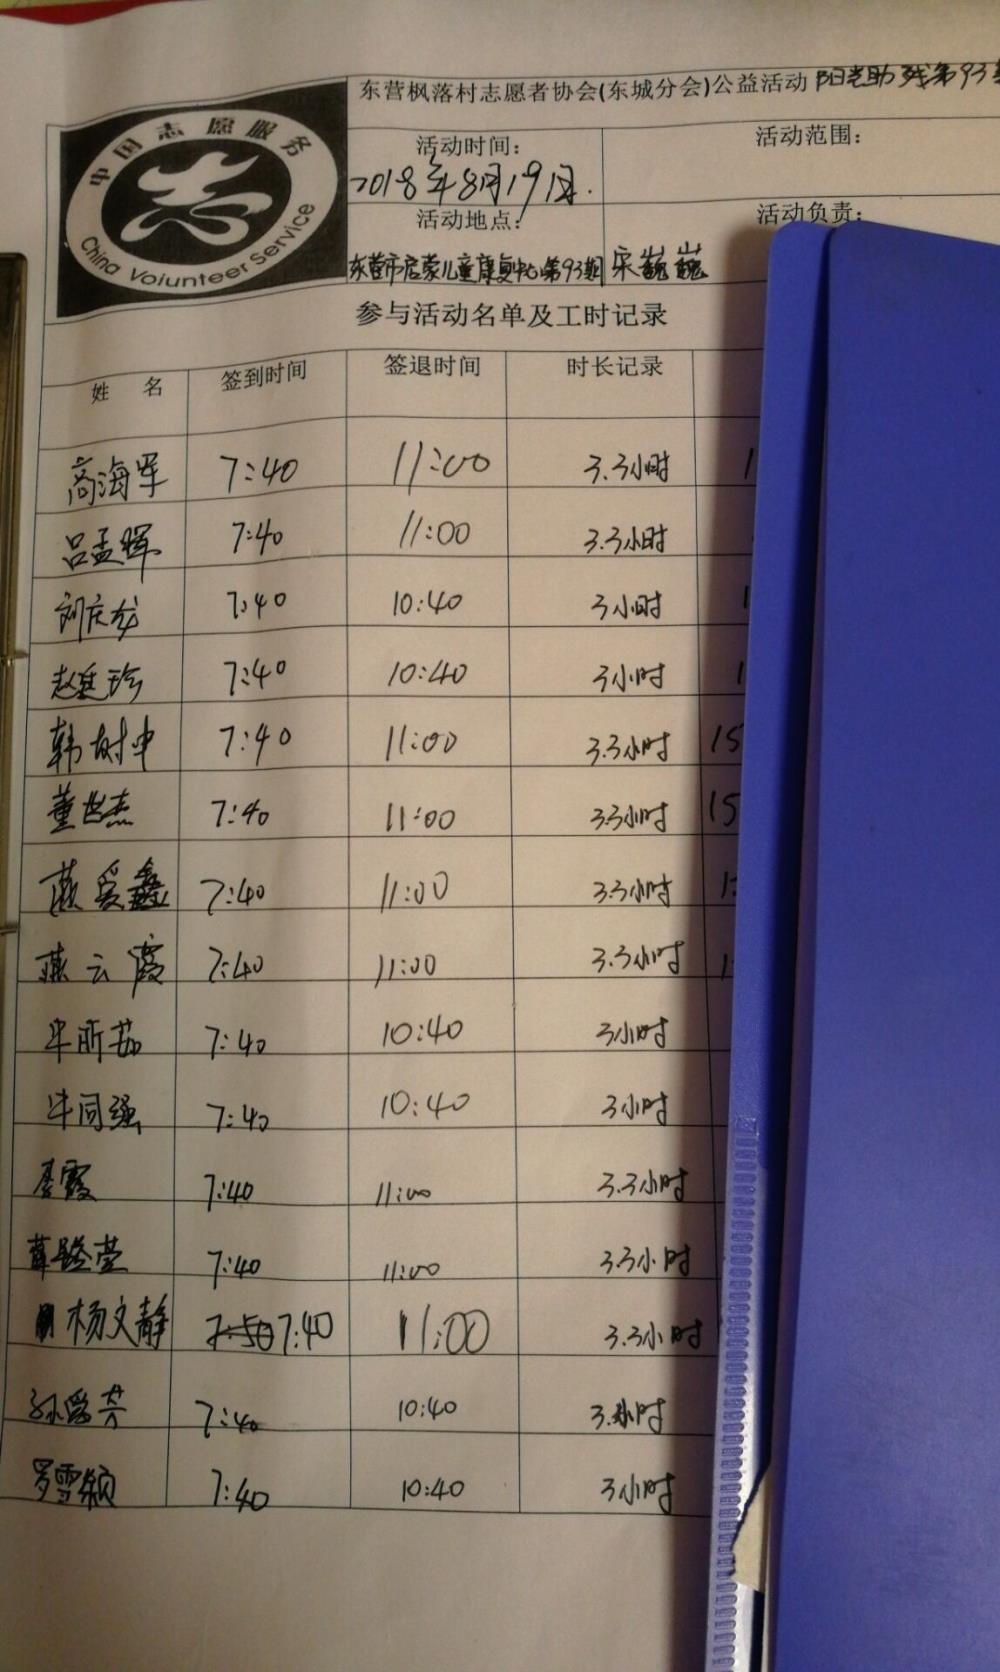 东营枫落村志愿者协会(东城分会)公益活动 阳光助残第93
中国志愿服务
China Voiunteer Service
活动时间: 活动范围:
2018年8月19日.
活动地点: 活动负责:
东营市启蒙儿童康复中心第93期 宋巍巍
参与活动名单及工时记录
姓 名 签到时间 签退时间 时长记录
高海军 7:40 11:00 3.3小时
吕孟晖 7:40 11:00 3.3小时
刘庆龙 7:40 10:40 3小时
赵廷珍 7:40 10:40 3小时
韩树中 7:40 11:00 3.3小时 15
董世杰 7:40 11:00 3.3小时 15
燕爱鑫 7:40 11:00 3.3小时
燕云霞 7:40 11:00 3.3小时
牛昕茹 7:40 10:40 3小时
牛同强 7:40 10:40 3小时
李霞 7:40 11:00 3.3小时
薛 莹 7:40 11:00 3.3小时
杨文静 7:50 7:40 11:00 3.3小时
孙爱芳 7:40 10:40 3小时
罗雪颖 7:40 10:40 3小时